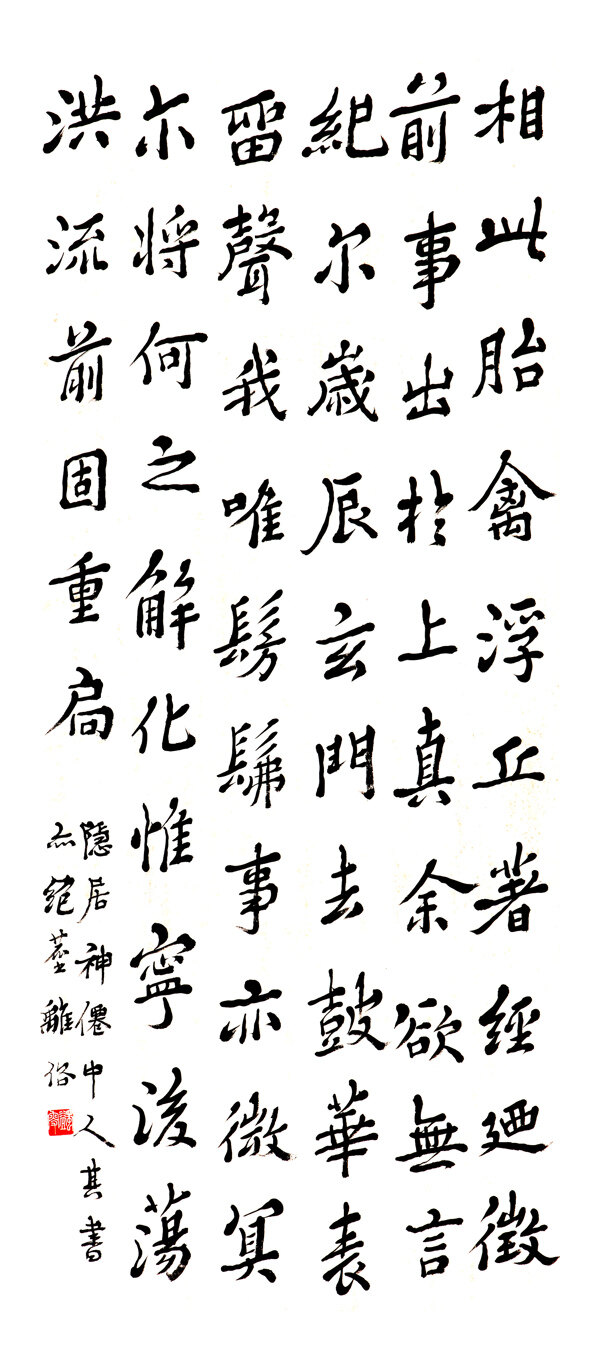 相此胎禽浮丘著經廼徵
前事出於上真余欲無言
紀尔歲辰玄門去鼓華表
留聲我唯髣髴事亦微冥
尔将何之解化惟寧後蕩
洪流前固重扃
隱居神僊中人其書
亦絕塵離俗